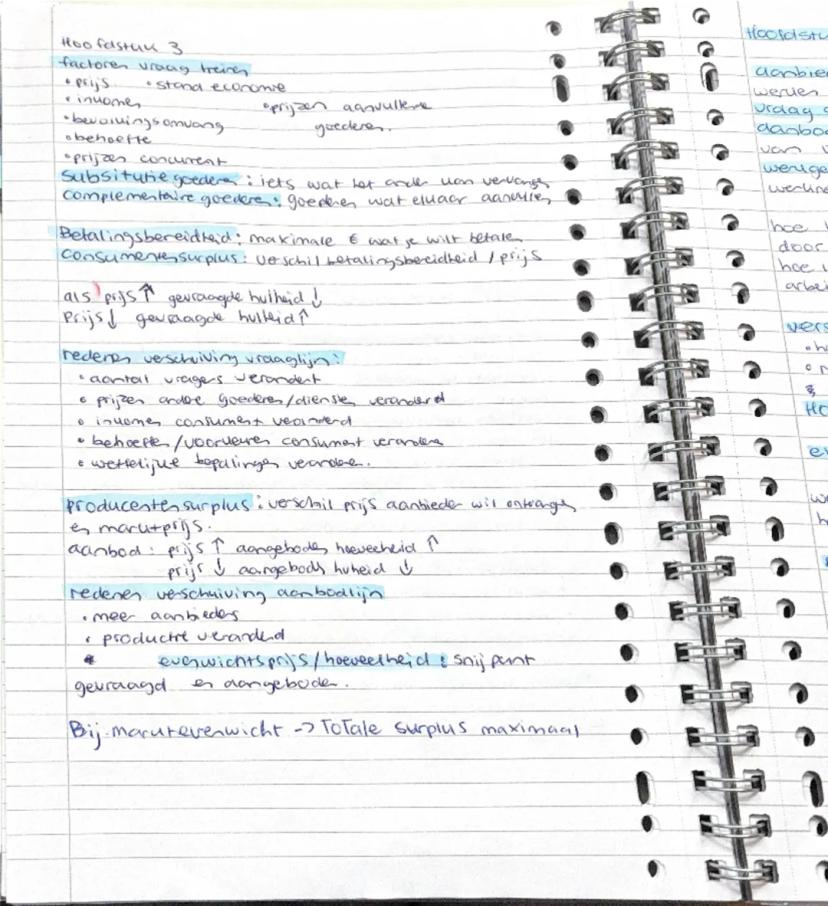 Hoofdstuk 3
factoren vraag
• prijs • stand economie
• inkomen • prijzen aanvullende
• bevolkingsomvang goederen.
• behoefte
• prijzen concurrent
Subsitutiegoederen: iets wat het ander kan vervangen
Complementaire goederen: goederen wat elkaar aanvullen
Betalingsbereidheid: maximale € wat je wilt betalen
Consumentensurplus: verschil betalingsbereidheid / prijs
als prijs ↑ gevraagde hvlheid ↓
Prijs ↓ gevraagde hvlheid ↑
redenen verschuiving vraaglijn:
• aantal vragers verandert
• prijzen andere goederen/diensten veranderd
• inkomen consument veranderd
• behoeften/voorkeuren consument veranderen
• wettelijke bepalingen veranderen.
producentensurplus: verschil prijs aanbieder wil ontvangen
en marktprijs.
aanbod: prijs ↑ aangeboden hoeveelheid ↑
prijs ↓ aangeboden hvheid ↓
redenen verschuiving aanbodlijn
• meer aanbieders
• productie veranderd
• evenwichtsprijs/hoeveelheid: snijpunt
gevraagd en aangeboden.
Bij marktevenwicht -> Totale surplus maximaal
Hoofdstu
aanbied
werken
vraag
aanbo
van
werkge
werkne
hoe
door
hoe
arbei
vers